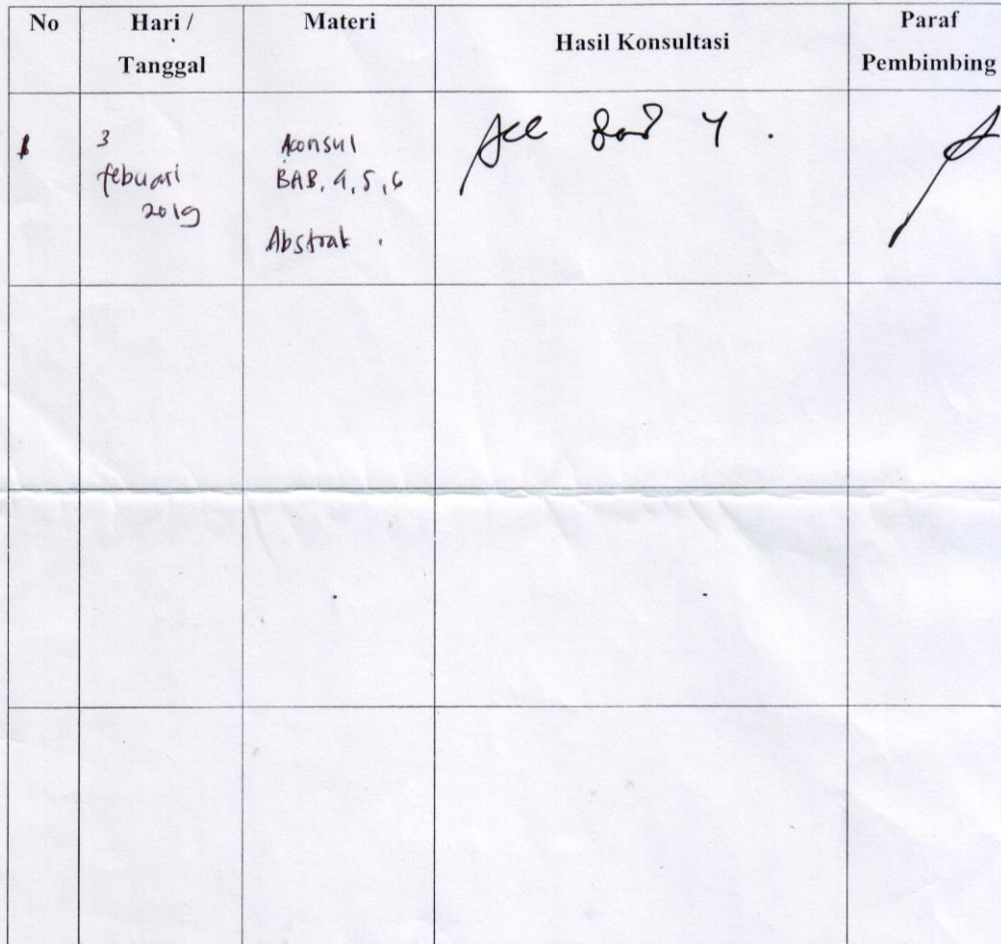 No
Hari /
Tanggal
Materi
Hasil Konsultasi
Paraf
Pembimbing
1
3
febuari
2019
konsul
BAB. 4, 5, 6
Abstrak
Acc